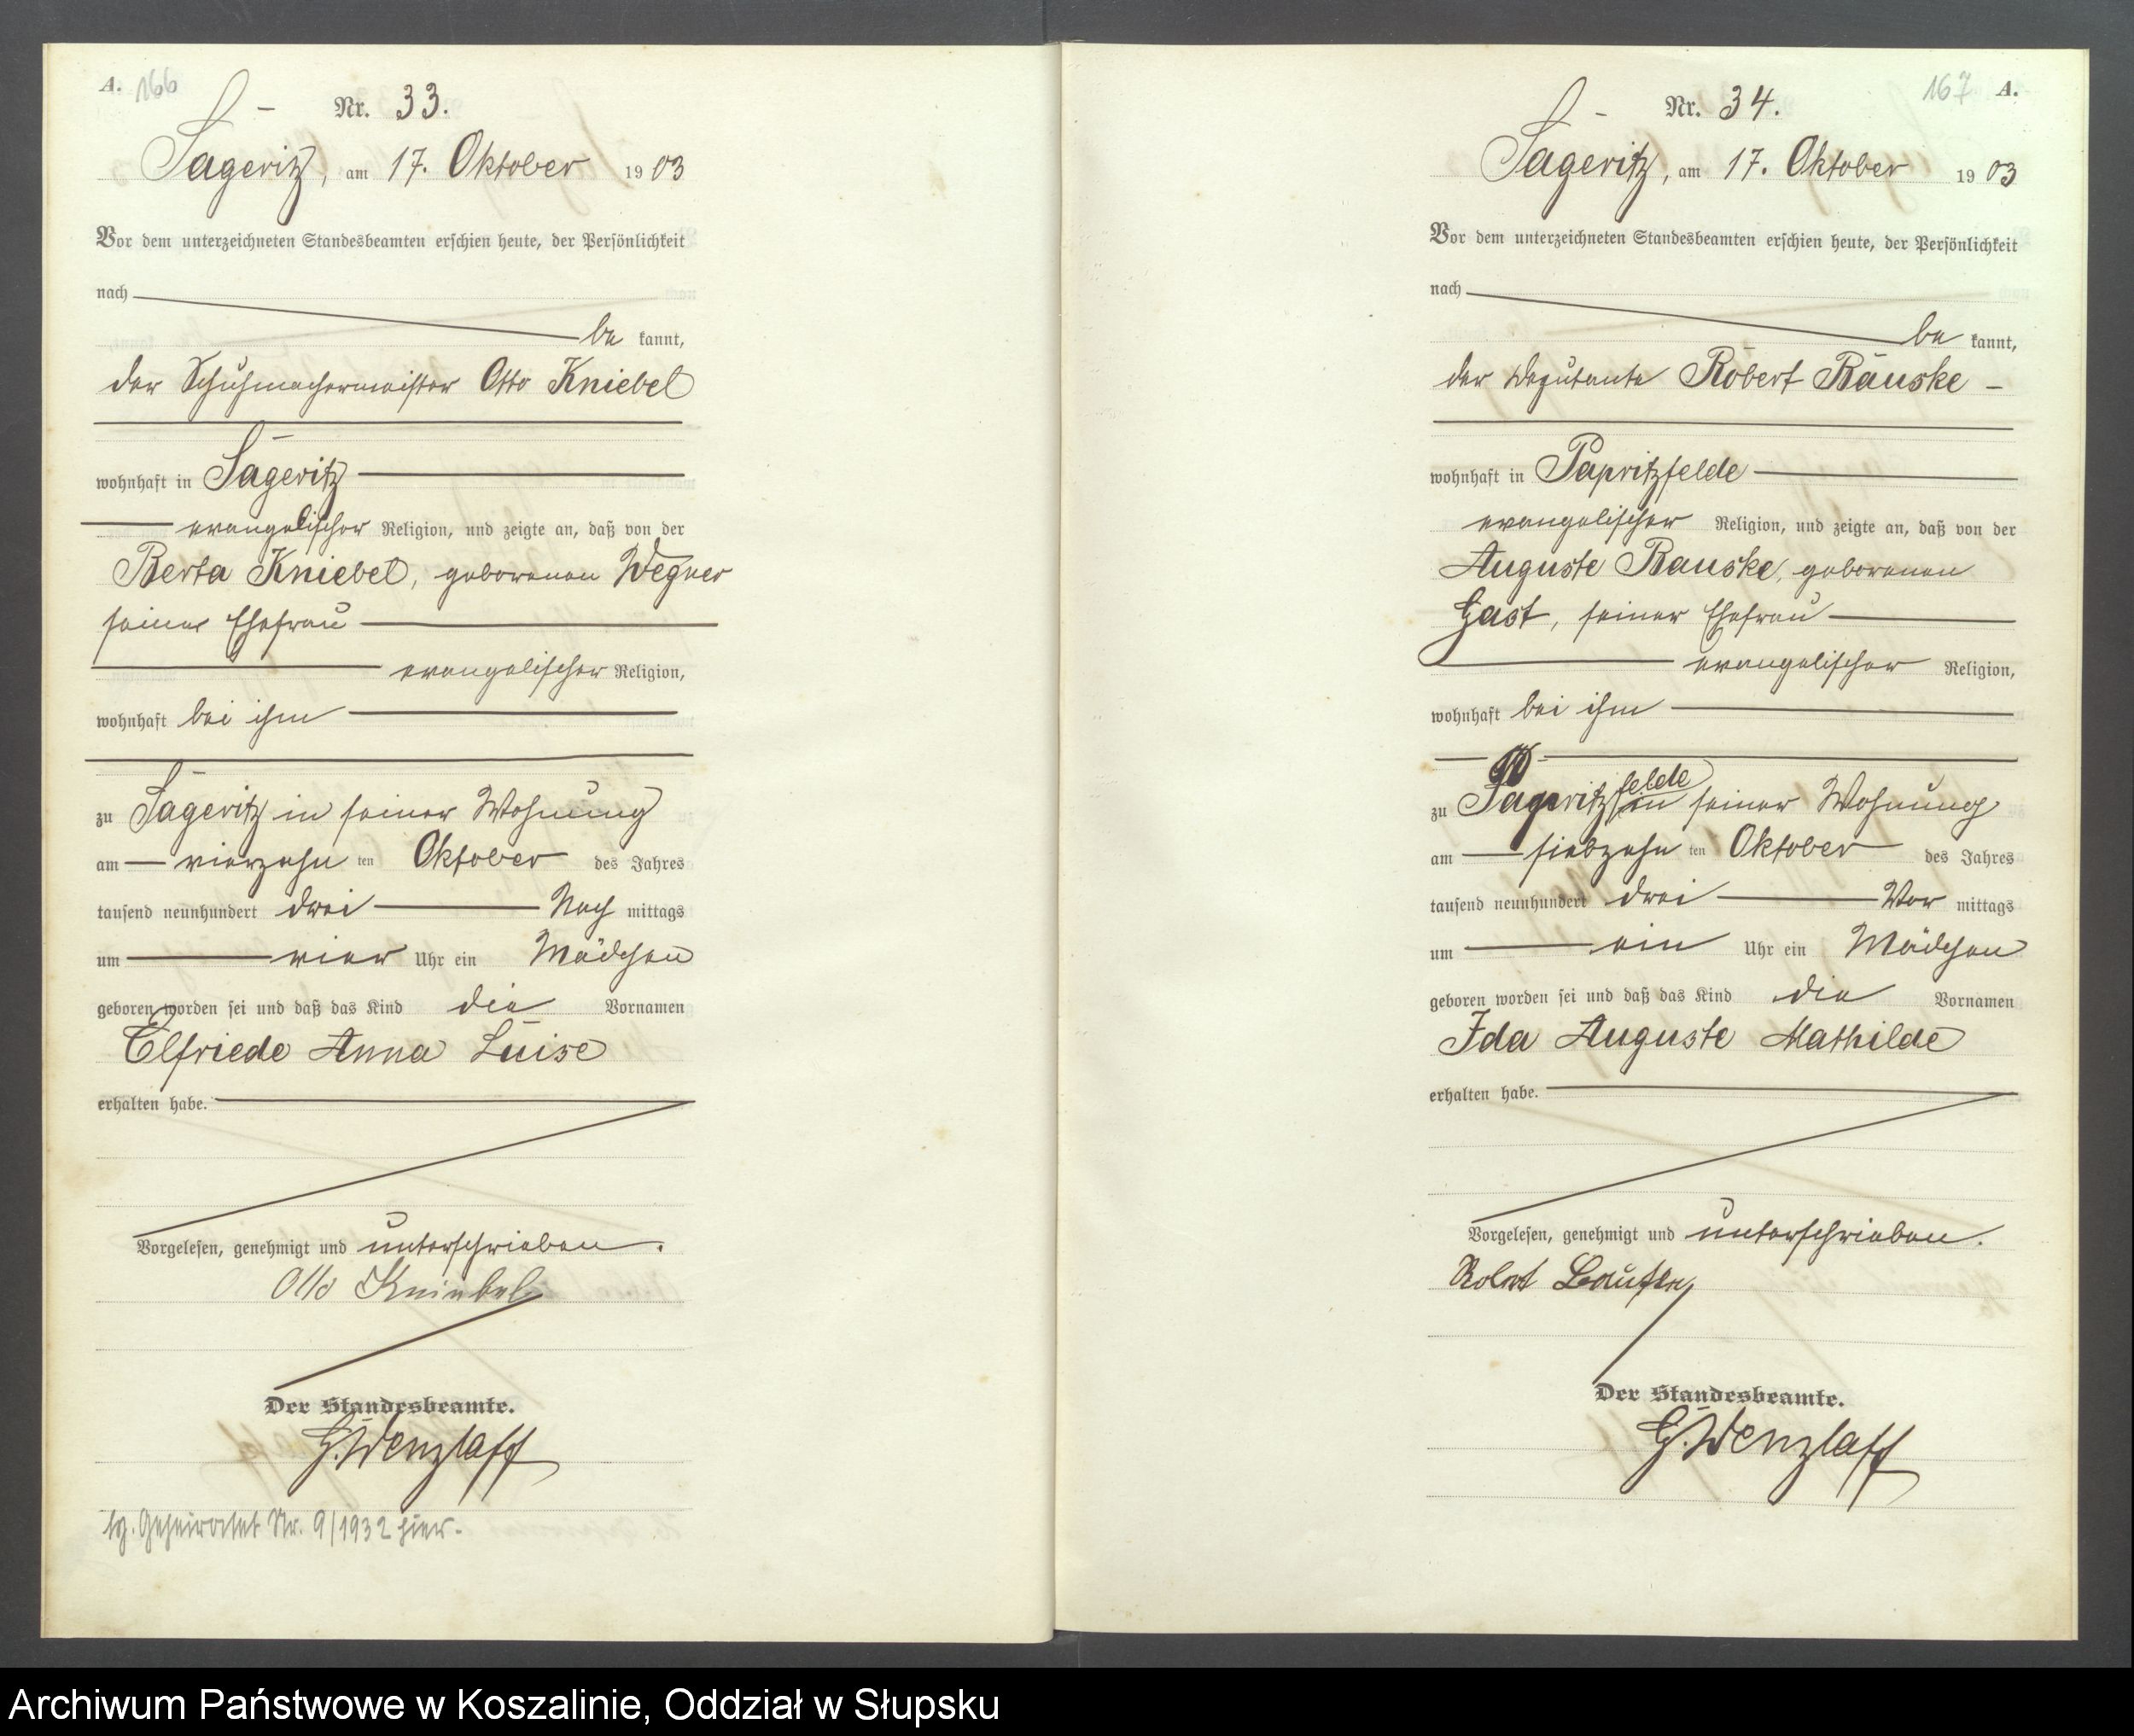 A. 166
Nr. 33.
Sageritz, am 17. Oktober 1903
Vor dem unterzeichneten Standesbeamten erschien heute, der Persönlichkeit
nach
be kannt,
der Schuhmachermeister Otto Kniebel
wohnhaft in Sageritz
evangelischer Religion, und zeigte an, daß von der
Berta Kniebel, geborenen Wegner
seiner Ehefrau
evangelischer Religion,
wohnhaft bei ihm
zu Sageritz in seiner Wohnung
am vierzehn ten Oktober des Jahres
tausend neunhundert drei Nach mittags
um vier Uhr ein Mädchen
geboren worden sei und daß das Kind die Vornamen
Elfriede Anna Luise
erhalten habe.
Vorgelesen, genehmigt und unterschrieben.
Otto Kniebel
Der Standesbeamte.
G. Wenzlaff
Geheiratet Nr. 9/1932 hier.
167 A.
Nr. 34.
Sageritz, am 17. Oktober 1903
Vor dem unterzeichneten Standesbeamten erschien heute, der Persönlichkeit
nach
be kannt,
der Deputante Robert Bauske
wohnhaft in Papritzfelde
evangelischer Religion, und zeigte an, daß von der
Auguste Bauske, geborenen
Gast, seiner Ehefrau
evangelischer Religion,
wohnhaft bei ihm
zu Papritzfelde in seiner Wohnung
am siebzehn ten Oktober des Jahres
tausend neunhundert drei Vor mittags
um ein Uhr ein Mädchen
geboren worden sei und daß das Kind die Vornamen
Ida Auguste Mathilde
erhalten habe.
Vorgelesen, genehmigt und unterschrieben.
Robert Bauske
Der Standesbeamte.
G. Wenzlaff
Archiwum Państwowe w Koszalinie, Oddział w Słupsku